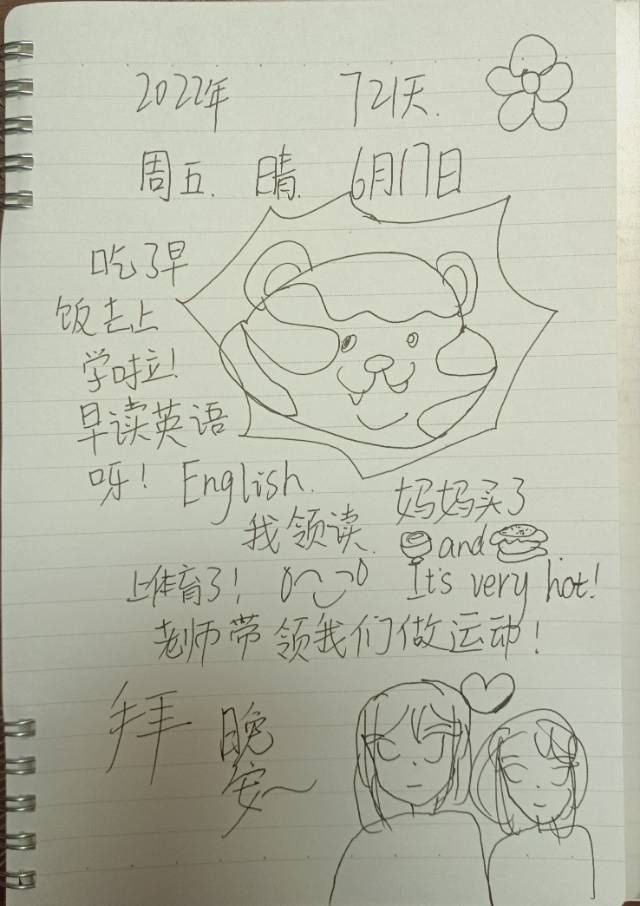 2022年 721天.
周五. 晴. 6月17日
吃了早
饭去上
学啦!
早读英语
呀! English.
妈妈买了
我领读.
and
上体育了!
It's very hot!
老师带领我们做运动!
拜
晚
安~